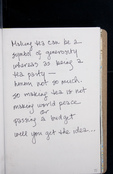 Making tea can be a
symbol of generosity
whereas as being a
tea party —
hmmm not so much.
so making tea is not
making world peace
or
passing a budget
well you get the idea...